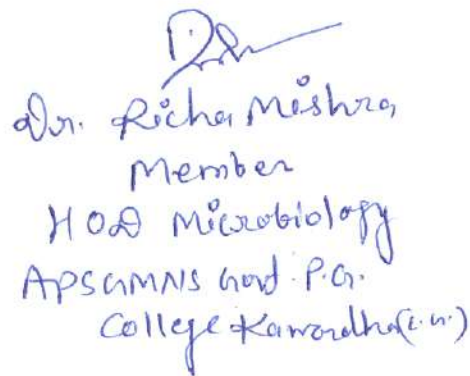 Dr. Richa Mishra
Member
HOD Microbiology
APSGMNS Govd. P.G.
College Kawardha (C.G.)